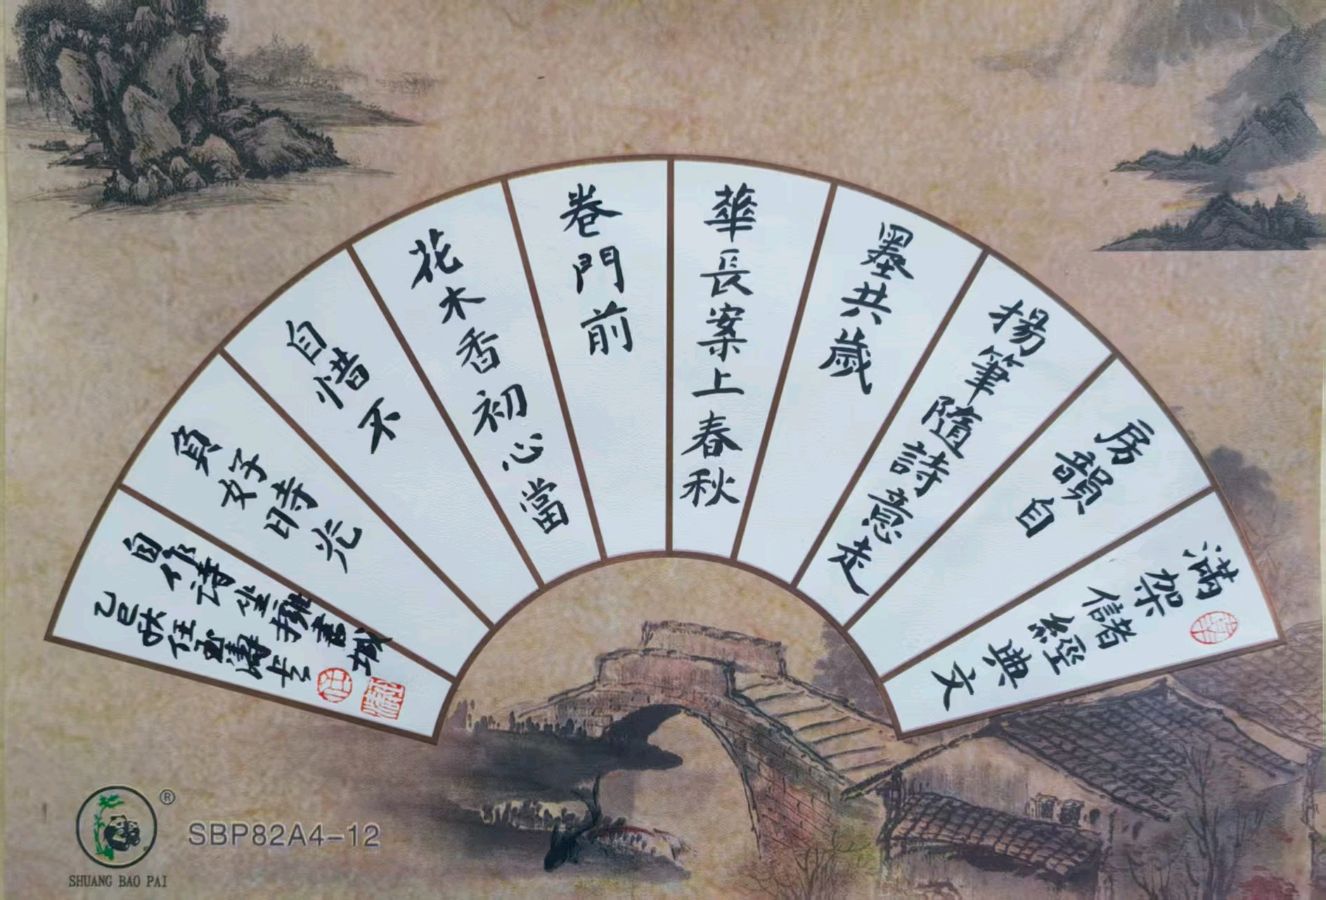 滿架儲經典文
房韻自
揚筆隨詩意走
墨共歲
華長案上春秋
卷門前
花木香初心當
自惜不
負好時光
自作诗坐擁書城
乙巳秋任
SHUANG BAO PAI
®
SBP82A4-12